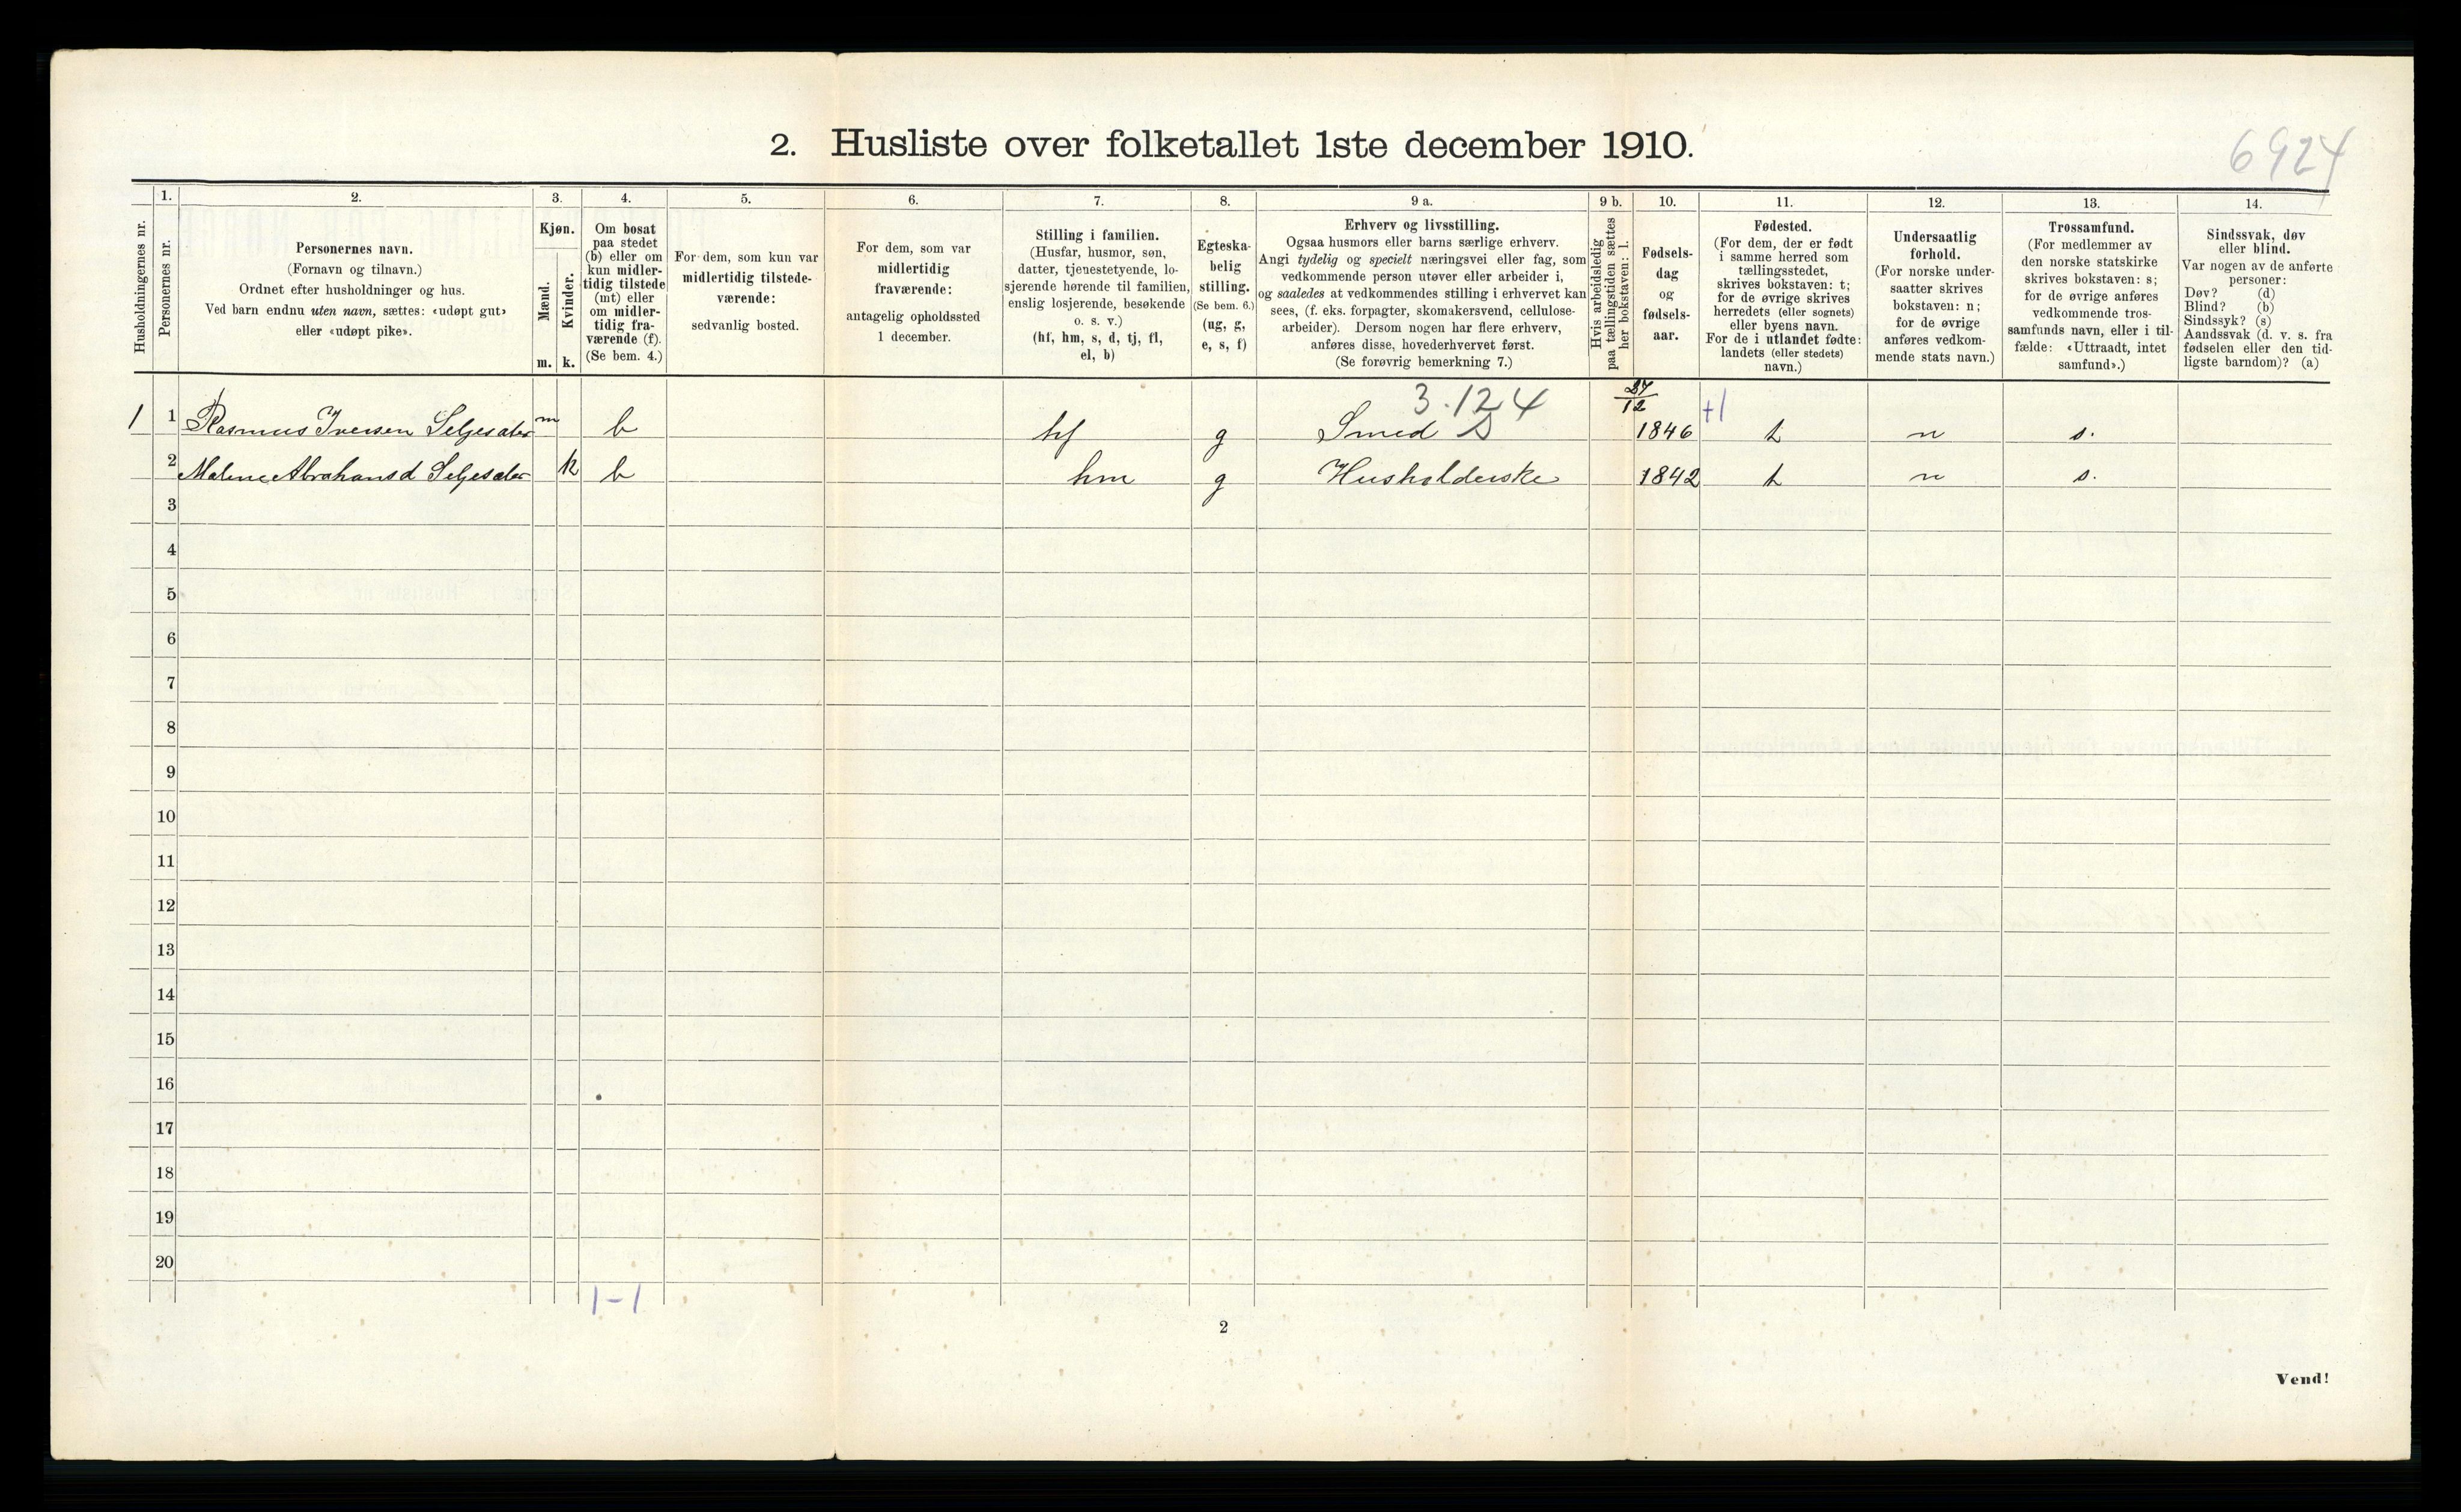 2. Husliste over folketallet 1ste december 1910.
6924
Husholdningernes nr.
1.
Personernes nr.
2.
Personernes navn.
(Fornavn og tilnavn.)
Ordnet efter husholdninger og hus.
Ved barn endnu uten navn, sættes: «udøpt gut»
eller «udøpt pike».
3.
Kjøn.
Mænd.
Kvinder.
m. k.
4.
Om bosat
paa stedet
(b) eller om
kun midler-
tidig tilstede
(mt) eller
om midler-
tidig fra-
værende (f).
(Se bem. 4.)
5.
For dem, som kun var
midlertidig tilstede-
værende:
sedvanlig bosted.
6.
For dem, som var
midlertidig
fraværende:
antagelig opholdssted
1 december.
7.
Stilling i familien.
(Husfar, husmor, søn,
datter, tjenestetyende, lo-
sjerende hørende til familien,
enslig losjerende, besøkende
o. s. v.)
(hf, hm, s, d, tj, fl,
el, b)
8.
Egteska-
belig
stilling.
(Se bem. 6.)
(ug, g,
e, s, f)
9 a.
Erhverv og livsstilling.
Ogsaa husmors eller barns særlige erhverv.
Angi tydelig og specielt næringsvei eller fag, som
vedkommende person utøver eller arbeider i,
og saaledes at vedkommendes stilling i erhvervet kan
sees, (f. eks. forpagter, skomakersvend, cellulose-
arbeider). Dersom nogen har flere erhverv,
anføres disse, hovederhvervet først.
(Se forøvrig bemerkning 7.)
9 b.
Hvis arbeidsledig
paa tællingstiden sættes
her bokstaven: l.
10.
Fødsels-
dag
og
fødsels-
aar.
11.
Fødested.
(For dem, der er født
i samme herred som
tællingsstedet,
skrives bokstaven: t;
for de øvrige skrives
herredets (eller sognets)
eller byens navn.
For de i utlandet fødte:
landets (eller stedets)
navn.)
12.
Undersaatlig
forhold.
(For norske under-
saatter skrives
bokstaven: n;
for de øvrige
anføres vedkom-
mende stats navn.)
13.
Trossamfund.
(For medlemmer av
den norske statskirke
skrives bokstaven: s;
for de øvrige anføres
vedkommende tros-
samfunds navn, eller i til-
fælde: «Uttraadt, intet
samfund».)
14.
Sindssvak, døv
eller blind.
Var nogen av de anførte
personer:
Døv? (d)
Blind? (b)
Sindssyk? (s)
Aandssvak (d. v. s. fra
fødselen eller den tid-
ligste barndom)? (a)
3.124 27/12 +1
1 1 Rasmus Iversen Seljesæter m b hf g Smed S 1846 t n s.
2 Malene Abrahansd Seljesæter k b hm g Husholderske 1842 t n s.
3
4
5
6
7
8
9
10
11
12
13
14
15
16
17
18
19
20
1-1
2
Vend!